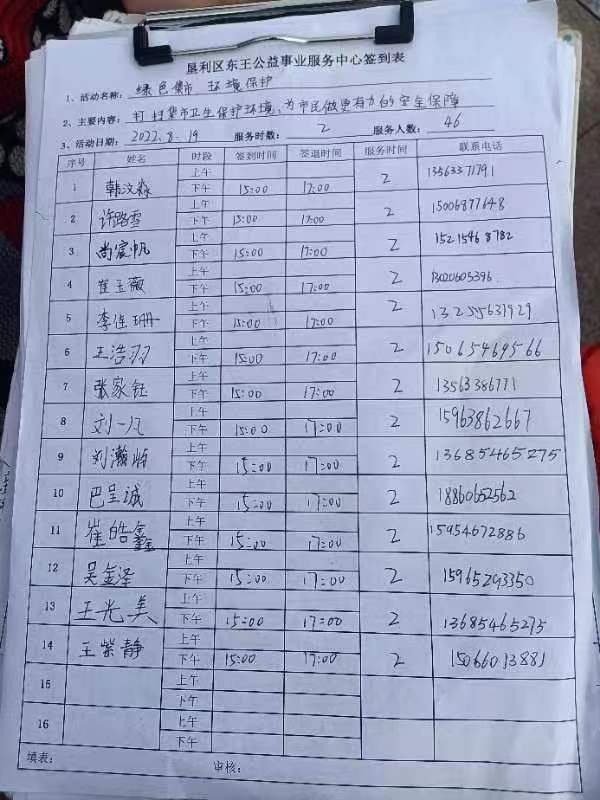 垦利区东王公益事业服务中心签到表
1、活动名称: 绿色集市 环境保护
2、主要内容: 打扫集市卫生保护环境、为市民做更有力的安全保障
3、活动日期: 2022.8.19 服务时数: 2 服务人数: 46
序号 姓名 时段 签到时间 签退时间 服务时间 联系电话
上午
1 韩汶淼 下午 15:00 17:00 2 13563371791
上午
2 许路雪 下午 15:00 17:00 2 15006877648
上午
3 尚宸帆 下午 15:00 17:00 2 15215468782
上午
4 崔玉薇 下午 15:00 17:00 2
上午
5 李佳珊 下午 15:00 17:00 2 13255631929
上午
6 王浩羽 下午 15:00 17:00 2 15065469566
上午
7 张家钰 下午 15:00 17:00 2 13563386771
上午
8 刘一凡 下午 15:00 17:00 2 15963862667
上午
9 刘瀚 下午 15:00 17:00 2 13685465275
上午
10 巴呈诚 下午 15:00 17:00 2 18860652562
上午
11 崔皓鑫 下午 15:00 17:00 2 15954672886
上午
12 吴金泽 下午 15:00 17:00 2 15965293350
上午
13 王光美 下午 15:00 17:00 2 13685465275
上午
14 王紫静 下午 15:00 17:00 2 15066013881
上午
15 下午
上午
16 下午
填表: 审核: